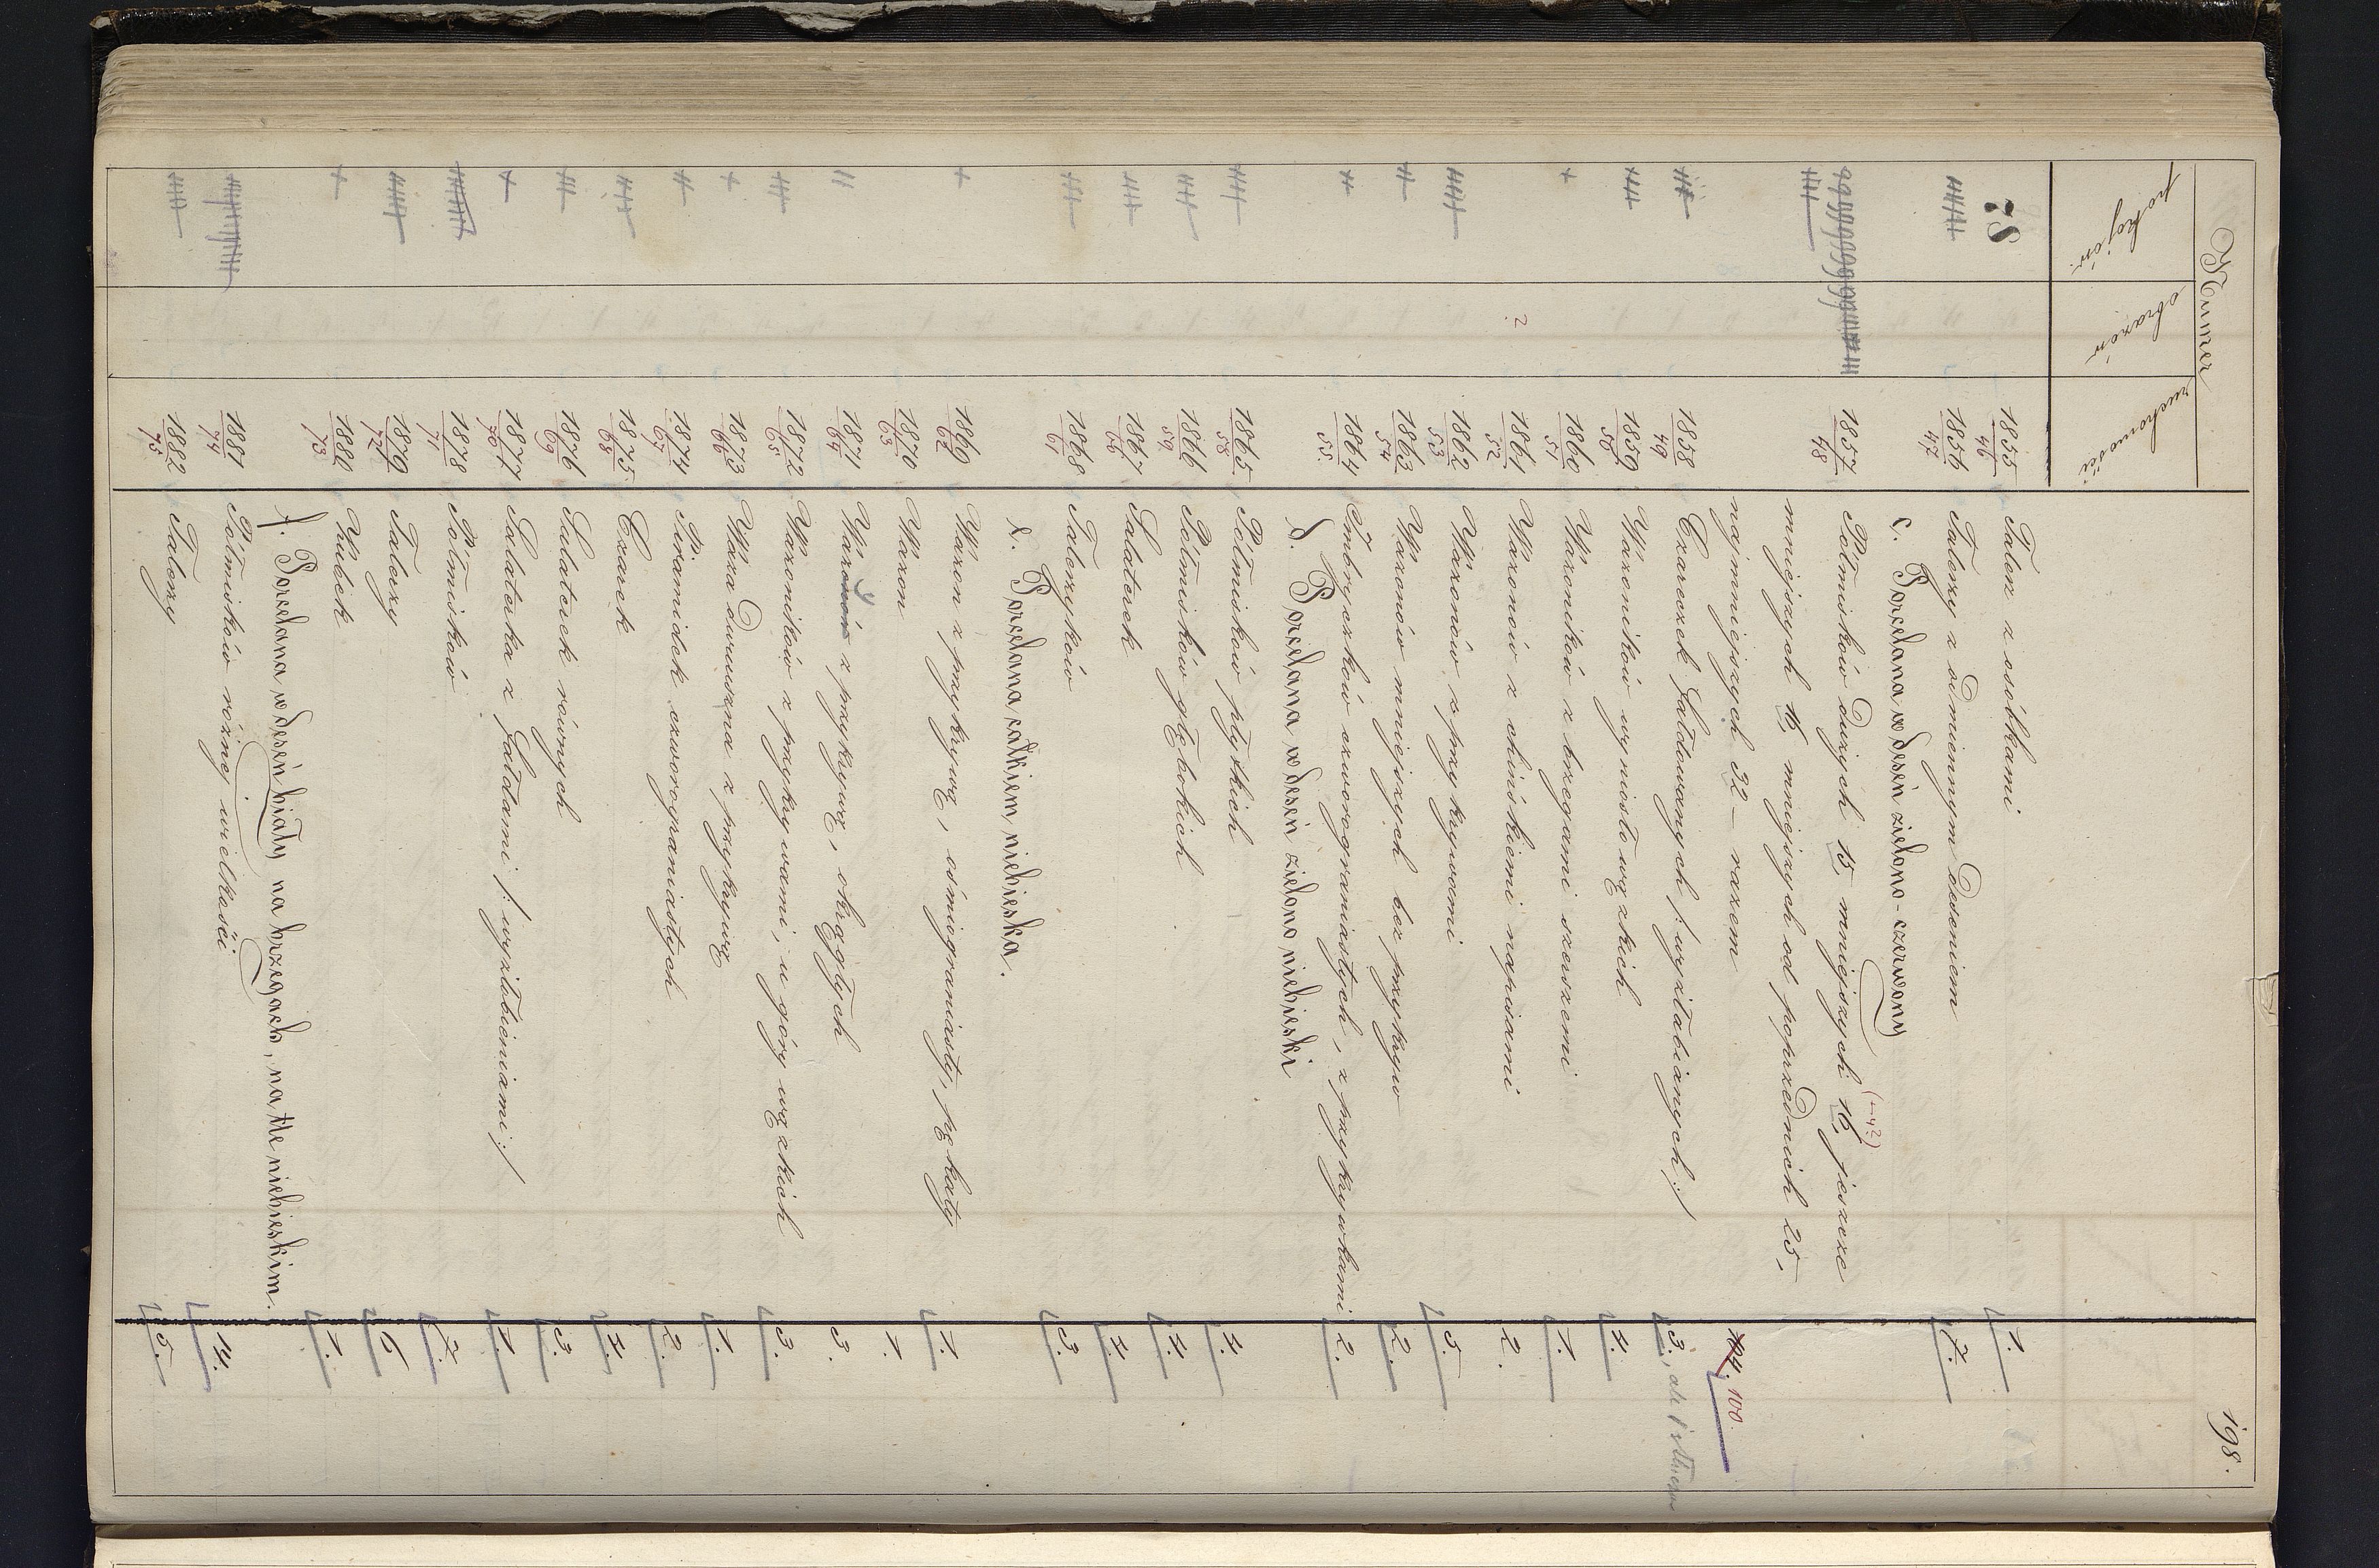 198.
Numer
pokojów. obrazów ruchomości
78 1855 46 Talerz z osóbkami 1.
1856 47 Talerzy z odmiennym deseniem 7.
c. Porcelana w deseń zielono-czerwony
1857 48 Półmisków dużych 15, mniejszych 16, jeszcze
mniejszych 16, mniejszych od poprzednich 25,
najmniejszych 32 – razem 100
1858 49 Czareczek fałdowanych /: wyżłabianych :/ 3., ale
1859 50 Wazoników wysmukło wązkich 4.
1860 51 Wazoników z brzegami szerszemi 1.
? 1861 52 Wazonów z chińskiemi napisami 2.
1862 53 Wazonów z przykrywami 5.
1863 54 Wazonów mniejszych bez przykryw 2.
1864 55. Imbryczków czworograniastych, z przykrywkami 2.
d. Porcelana w deseń zielono niebieski
1865 58 Półmisków płytkich 4.
1866 59 Półmisków głębokich 4.
1867 60 Salaterek 4.
1868 61 Talerzyków 3.
e. Porcelana całkiem niebieska.
1869 62 Wazon z przykrywą, ośmiograniasty, pękaty 1.
1870 63 Wazon 1.
1871 64 Wazy z przykrywą, okrągłych 3.
1872 65 Wazoników z przykrywami, u góry wązkich 3.
1873 66 Waza duruwzna z przykrywą 1.
1874 67 Piramidek czworograniastych 2.
1875 68 Czarek 4.
1876 69 Salaterek równych 3.
1877 70 Salaterka z fałdami /: wyżłobieniami :/ 1.
1878 71 Półmisków 7.
1879 72 Talerzy 6
1880 73 Kubek 1.
f. Porcelana w deseń biały na brzegach, na tle niebieskim.
1881 74 Półmisków różnej wielkości 14.
1882 75 Talerzy 5.